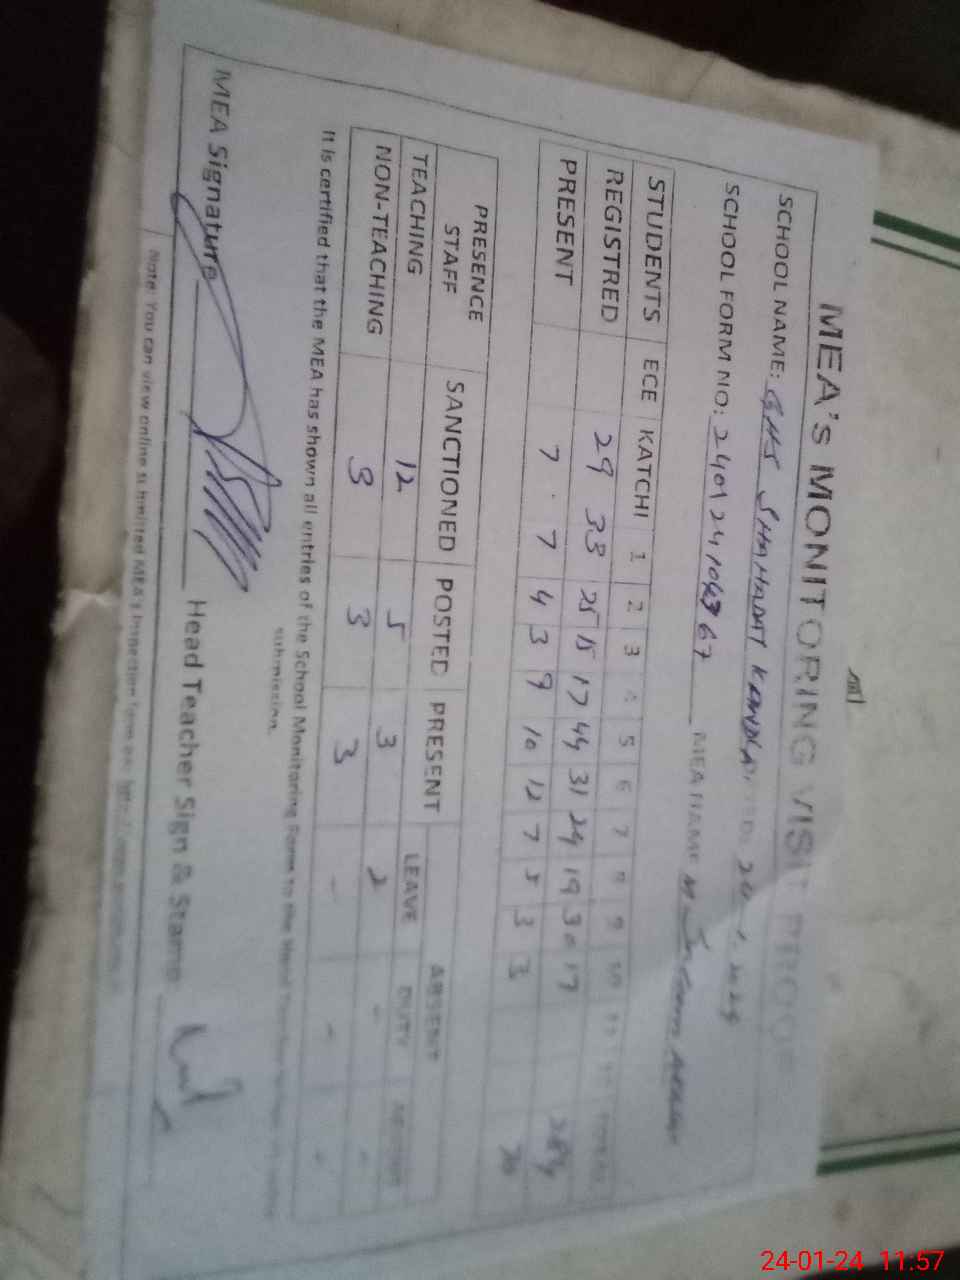 MEA'S MONITORING VISIT PROOF
SCHOOL NAME: GHS SHAHADAT 2024
SCHOOL FORM NO: MEA NAME M
STUDENTS ECE KATCHI 1 2 3 4 5 6 7 8 9 10 11
REGISTRED 29 33 25 15 17 44 31 24 19 30 17
PRESENT 7 7 4 3 9 10 12 7 5 3 3 70
PRESENCE STAFF SANCTIONED POSTED PRESENT ABSENT
LEAVE DUTY
TEACHING 12 5 3 2 - -
NON-TEACHING 3 3 3 - - -
It is certified that the MEA has shown all entries of the School Monitoring Form to the Head
submission.
MEA Signature Head Teacher Sign & Stamp
Note: You can view online submitted MEA's Inspection form
24-01-24 11:57